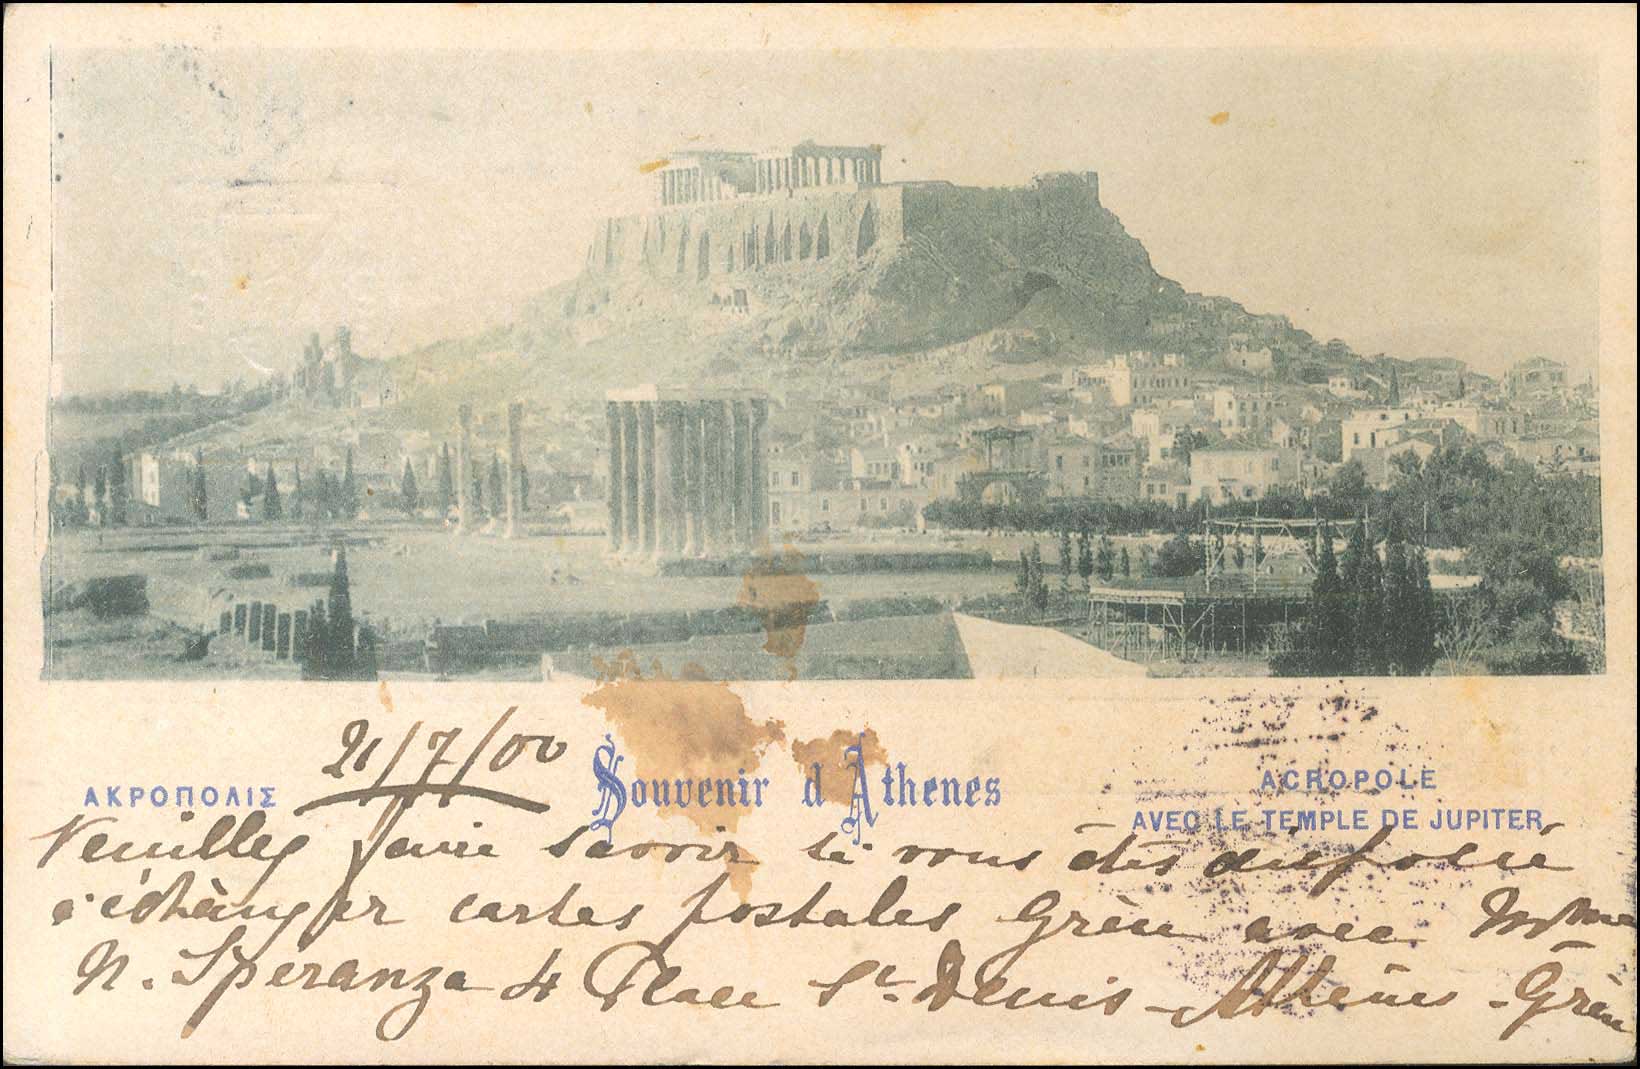 21/7/00
ΑΚΡΟΠΟΛΙΣ
Souvenir d'Athenes
ACROPOLE
AVEC LE TEMPLE DE JUPITER
Veuillez faire savoir si vous êtes disposée
à échànger cartes postales Grèce avec Mme
N. Speranza 4 Place St. Denis - Athènes - Grèce